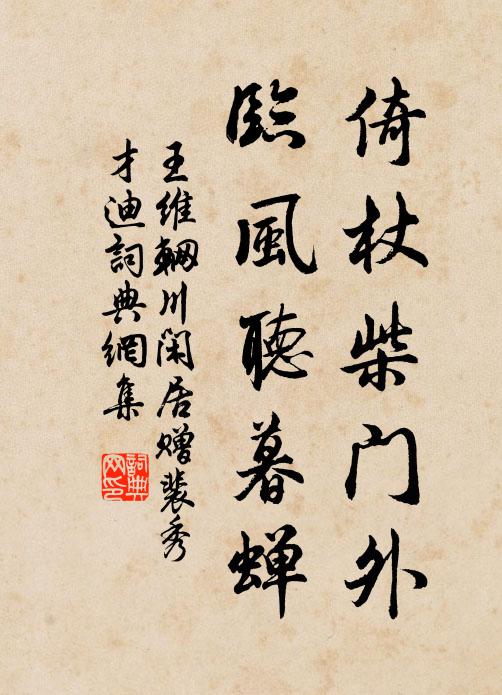 倚杖柴門外
臨風聽暮蟬
王維輞川閑居贈裴秀
才迪詞典網集
詞典
网印